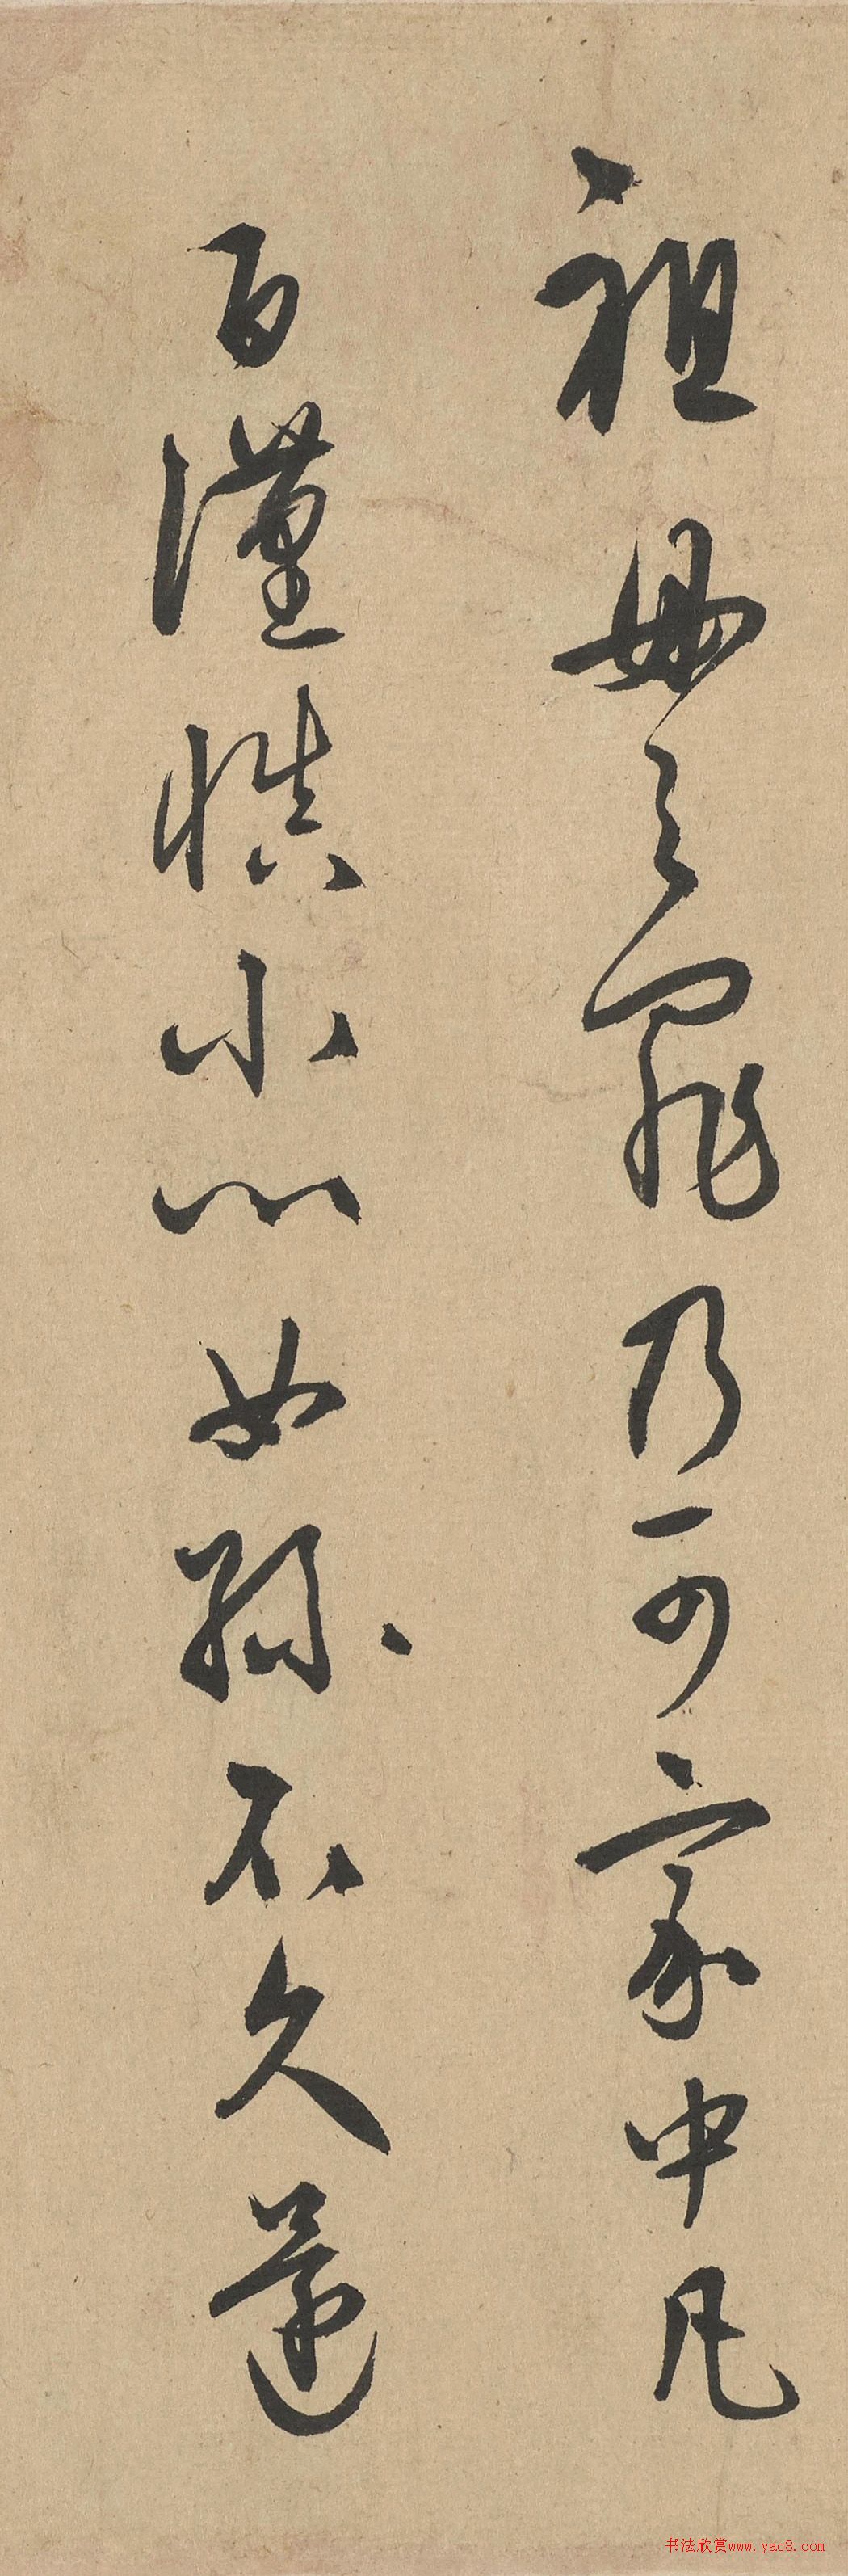 祖母之罪乃可家中凡
百謹慎小心女孫不久還
书法欣赏www.yac8.com